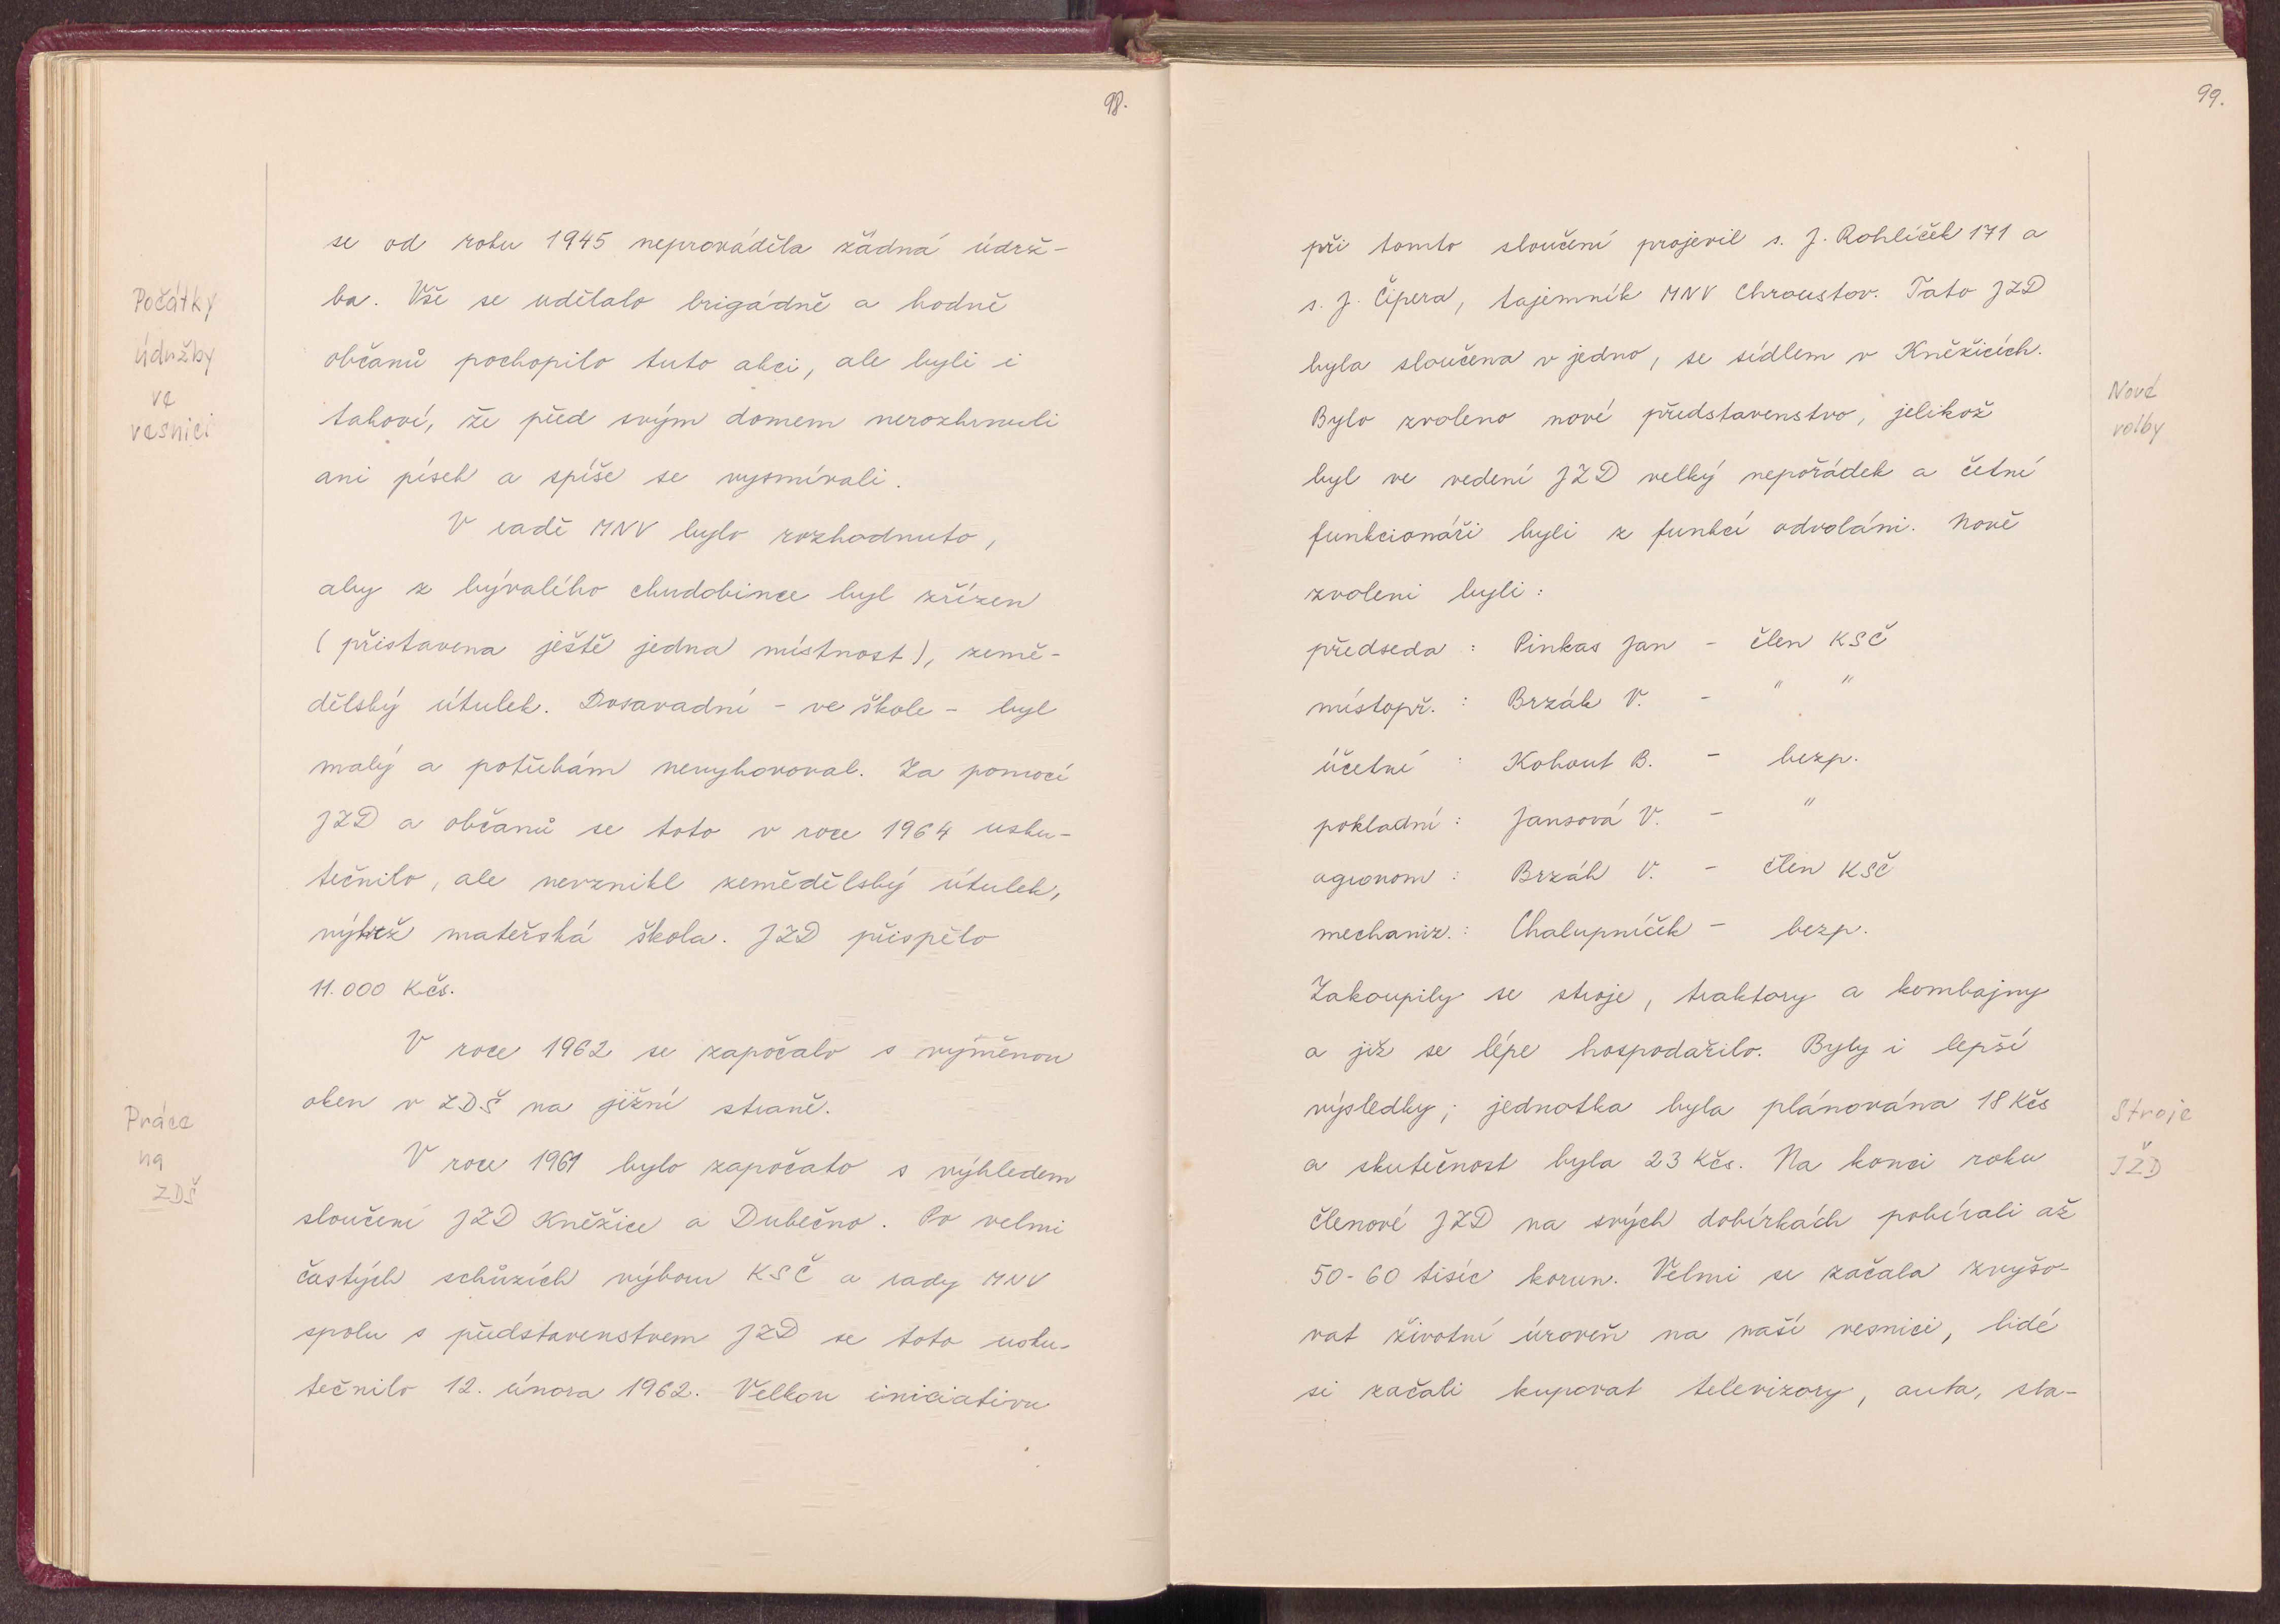 98.
se od roku 1945 neprováděla žádná údrž-
ba. Vše se udělalo brigádně a hodně
občanů pochopilo tuto akci, ale byli i
takoví, že před svým domem nerozhrnuli
ani písek a spíše se vysmívali.
V radě MNV bylo rozhodnuto,
aby z bývalého chudobince byl zřízen
(přistavena ještě jedna místnost), země-
dělský útulek. Dosavadní - ve škole - byl
malý a potřebám nevyhovoval. Za pomoci
JZD a občanů se toto v roce 1964 usku-
tečnilo, ale nevznikl zemědělský útulek,
nýbrž mateřská škola. JZD přispělo
11.000 Kčs.
V roce 1962 se započalo s výměnou
oken v ZDŠ na jižní straně.
V roce 1961 bylo započato s výhledem
sloučení JZD Kněžice a Dubečno. Po velmi
častých schůzích výboru KSČ a rady MNV
spolu s představenstvem JZD se toto usku-
tečnilo 12. února 1962. Velkou iniciativu
Počátky
údržby
ve
vesnici
Práce
na
ZDŠ
99.
při tomto sloučení projevil s. J. Rohlíček 171 a
s. J. Čipera, tajemník MNV Chroustov. Tato JZD
byla sloučena v jedno, se sídlem v Kněžicích.
Bylo zvoleno nové představenstvo, jelikož
byl ve vedení JZD velký nepořádek a četní
funkcionáři byli z funkcí odvoláni. Nově
zvoleni byli:
předseda : Pinkas Jan - člen KSČ
místopř. : Brzák V. - " "
účetní : Kohout B. - bezp.
pokladní : Jansová V. - "
agronom : Brzák V. - člen KSČ
mechaniz. : Chalupníček - bezp.
Zakoupily se stroje, traktory a kombajny
a již se lépe hospodařilo. Byly i lepší
výsledky; jednotka byla plánována 18 Kčs
a skutečnost byla 23 Kčs. Na konci roku
členové JZD na svých dobírkách pobírali až
50-60 tisíc korun. Velmi se začala zvyšo-
vat životní úroveň na naší vesnici, lidé
si začali kupovat televizory, auta, sta-
Nové
volby
Stroje
JZD